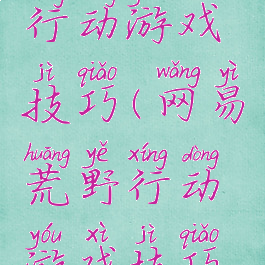 行动游戏
jì qiǎo wǎng yì
技巧(网易
huāng yě xíng dòng
荒野行动
yóu xì jì qiǎo
游戏技巧